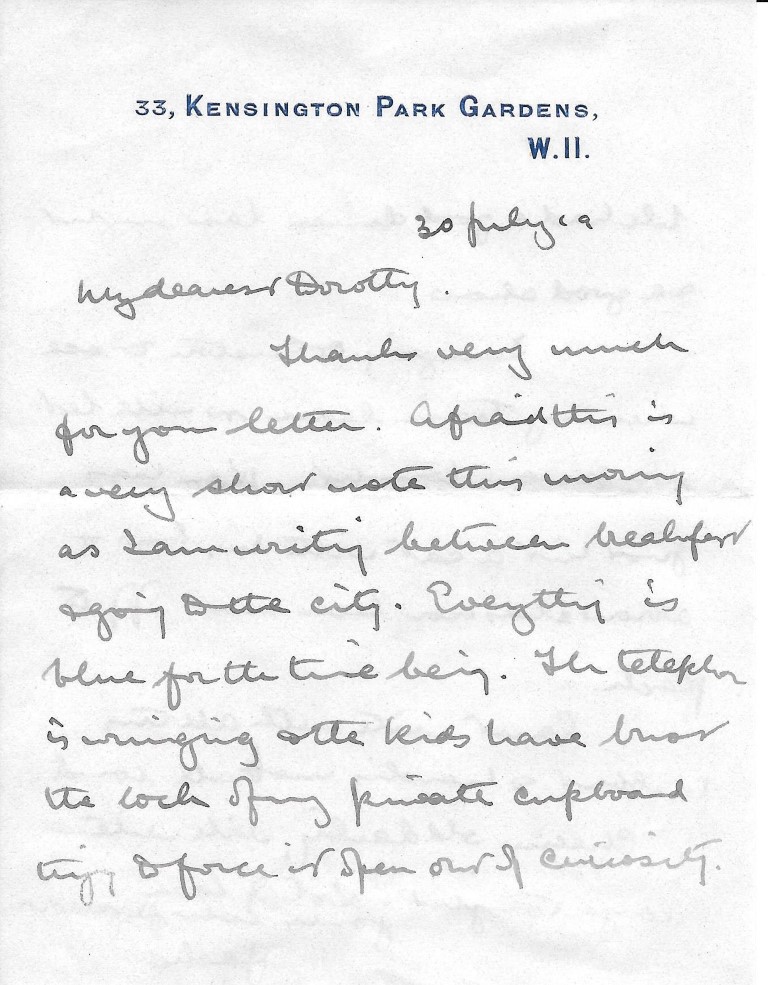 33, KENSINGTON PARK GARDENS,
W.11.
30 July 19
My dearest Dorothy.
Thanks very much
for your letter. Afraid this is
a very short note this morning
as I am writing between breakfast
& going to the city. Everything is
blue for the time being. The telephone
is ringing & the kids have bust
the lock of my private cupboard
trying to force it open out of curiosity.